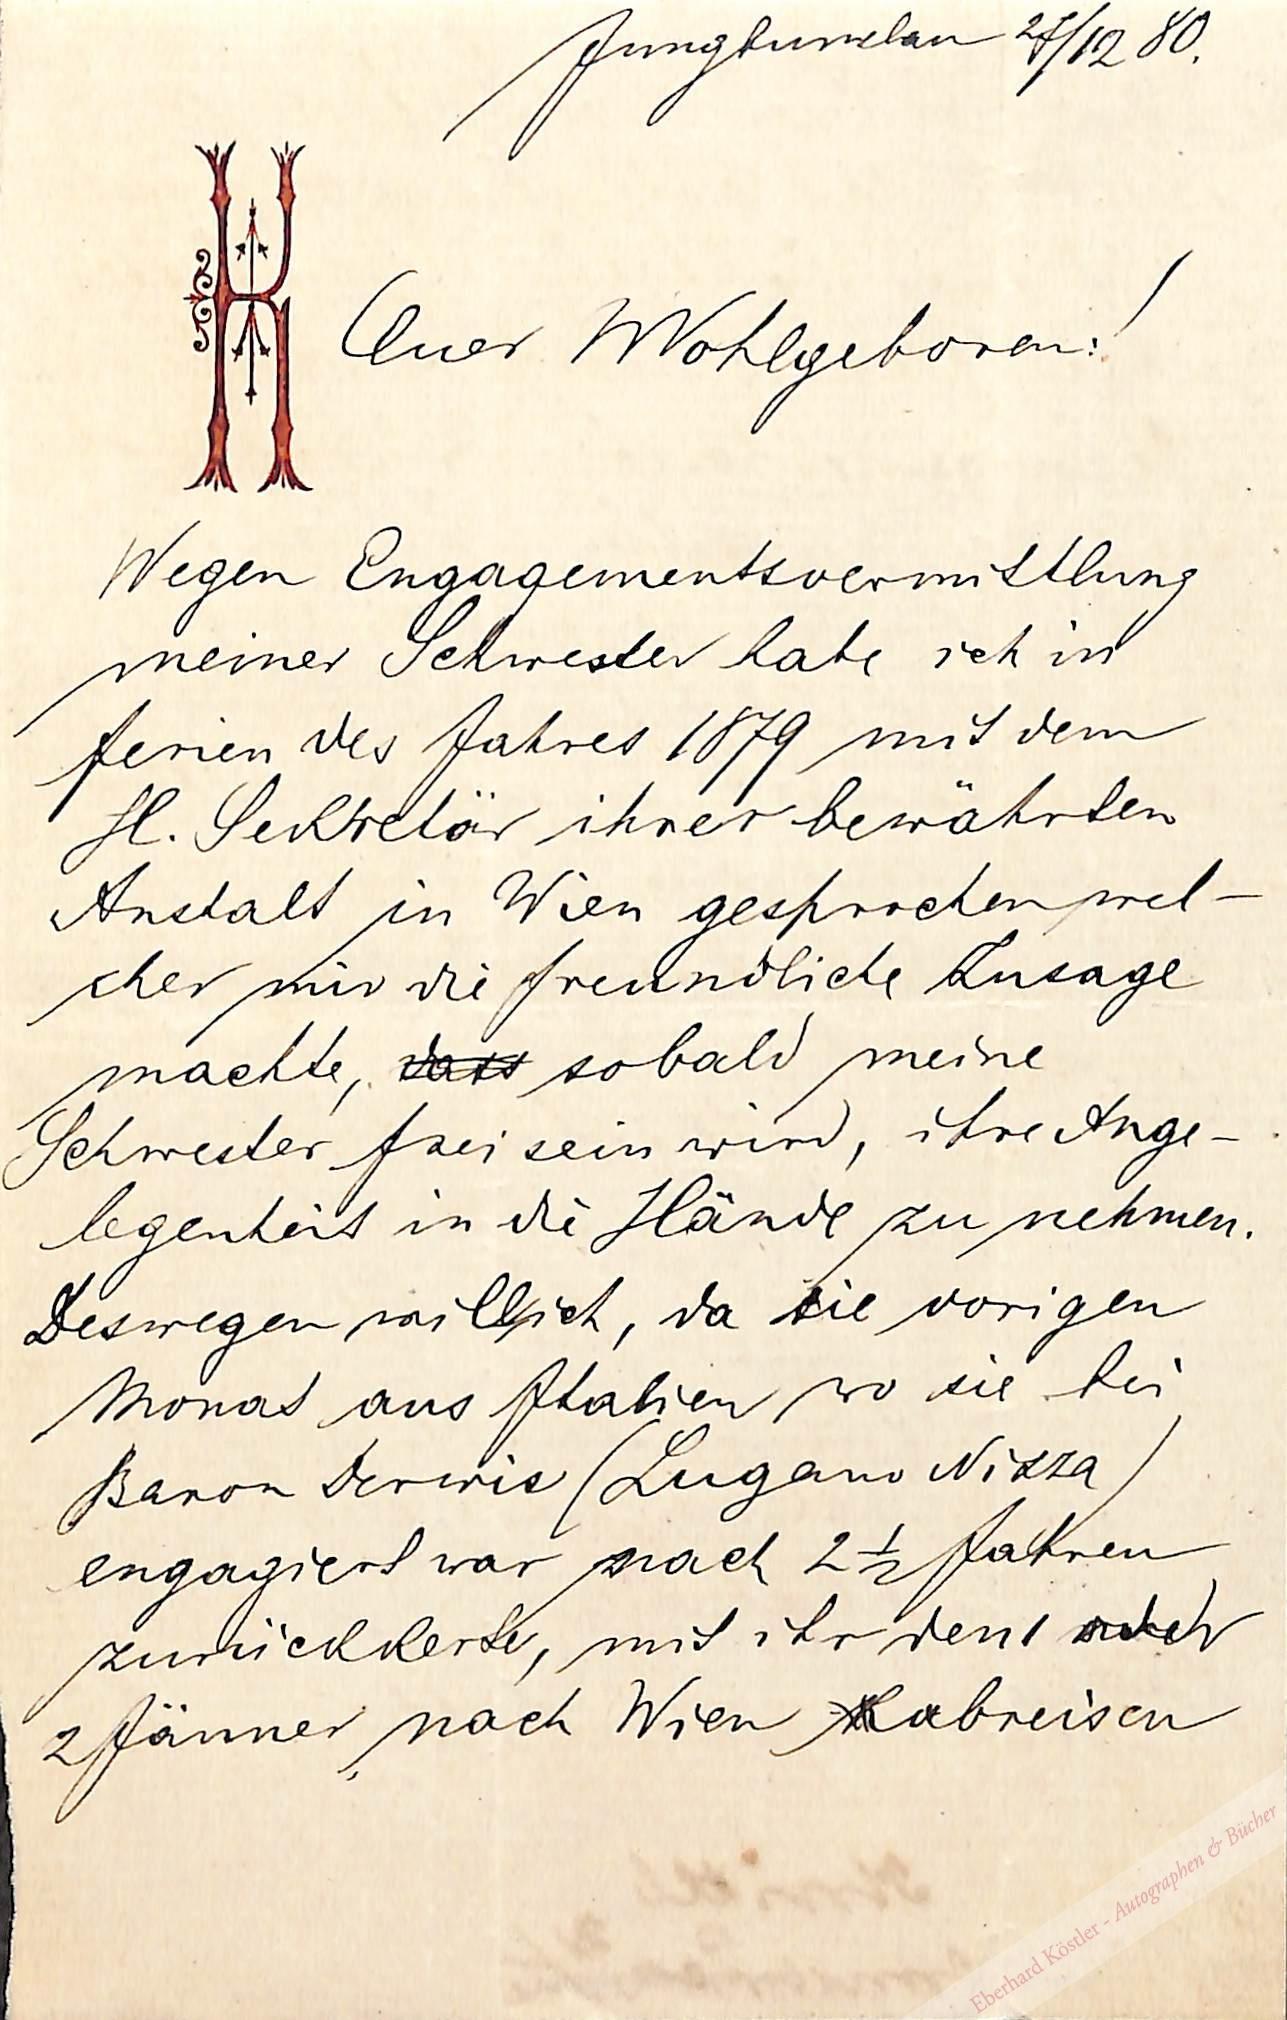 Jungbunzlau 27/12 80.
Euer Wohlgeboren!
Wegen Engagementsvermittlung
meiner Schwester habe ich in
ferien des Jahres 1879 mit dem
H. Sekretär ihrer bewährten
Anstalt in Wien gesprochen wel-
cher mir die freundliche Zusage
machte, dass sobald meine
Schwester frei sein wird, ihre Ange-
legenheit in die Hände zu nehmen.
Deswegen will ich, da sie vorigen
Monat aus Italien wo sie bei
Baron Derwis (Lugano Nizza)
engagiert war nach 2 1/2 Jahren
zurückkerte, mit ihr den 1 oder
2 Jänner nach Wien abreisen
Eberhard Köstler - Autographen & Bücher